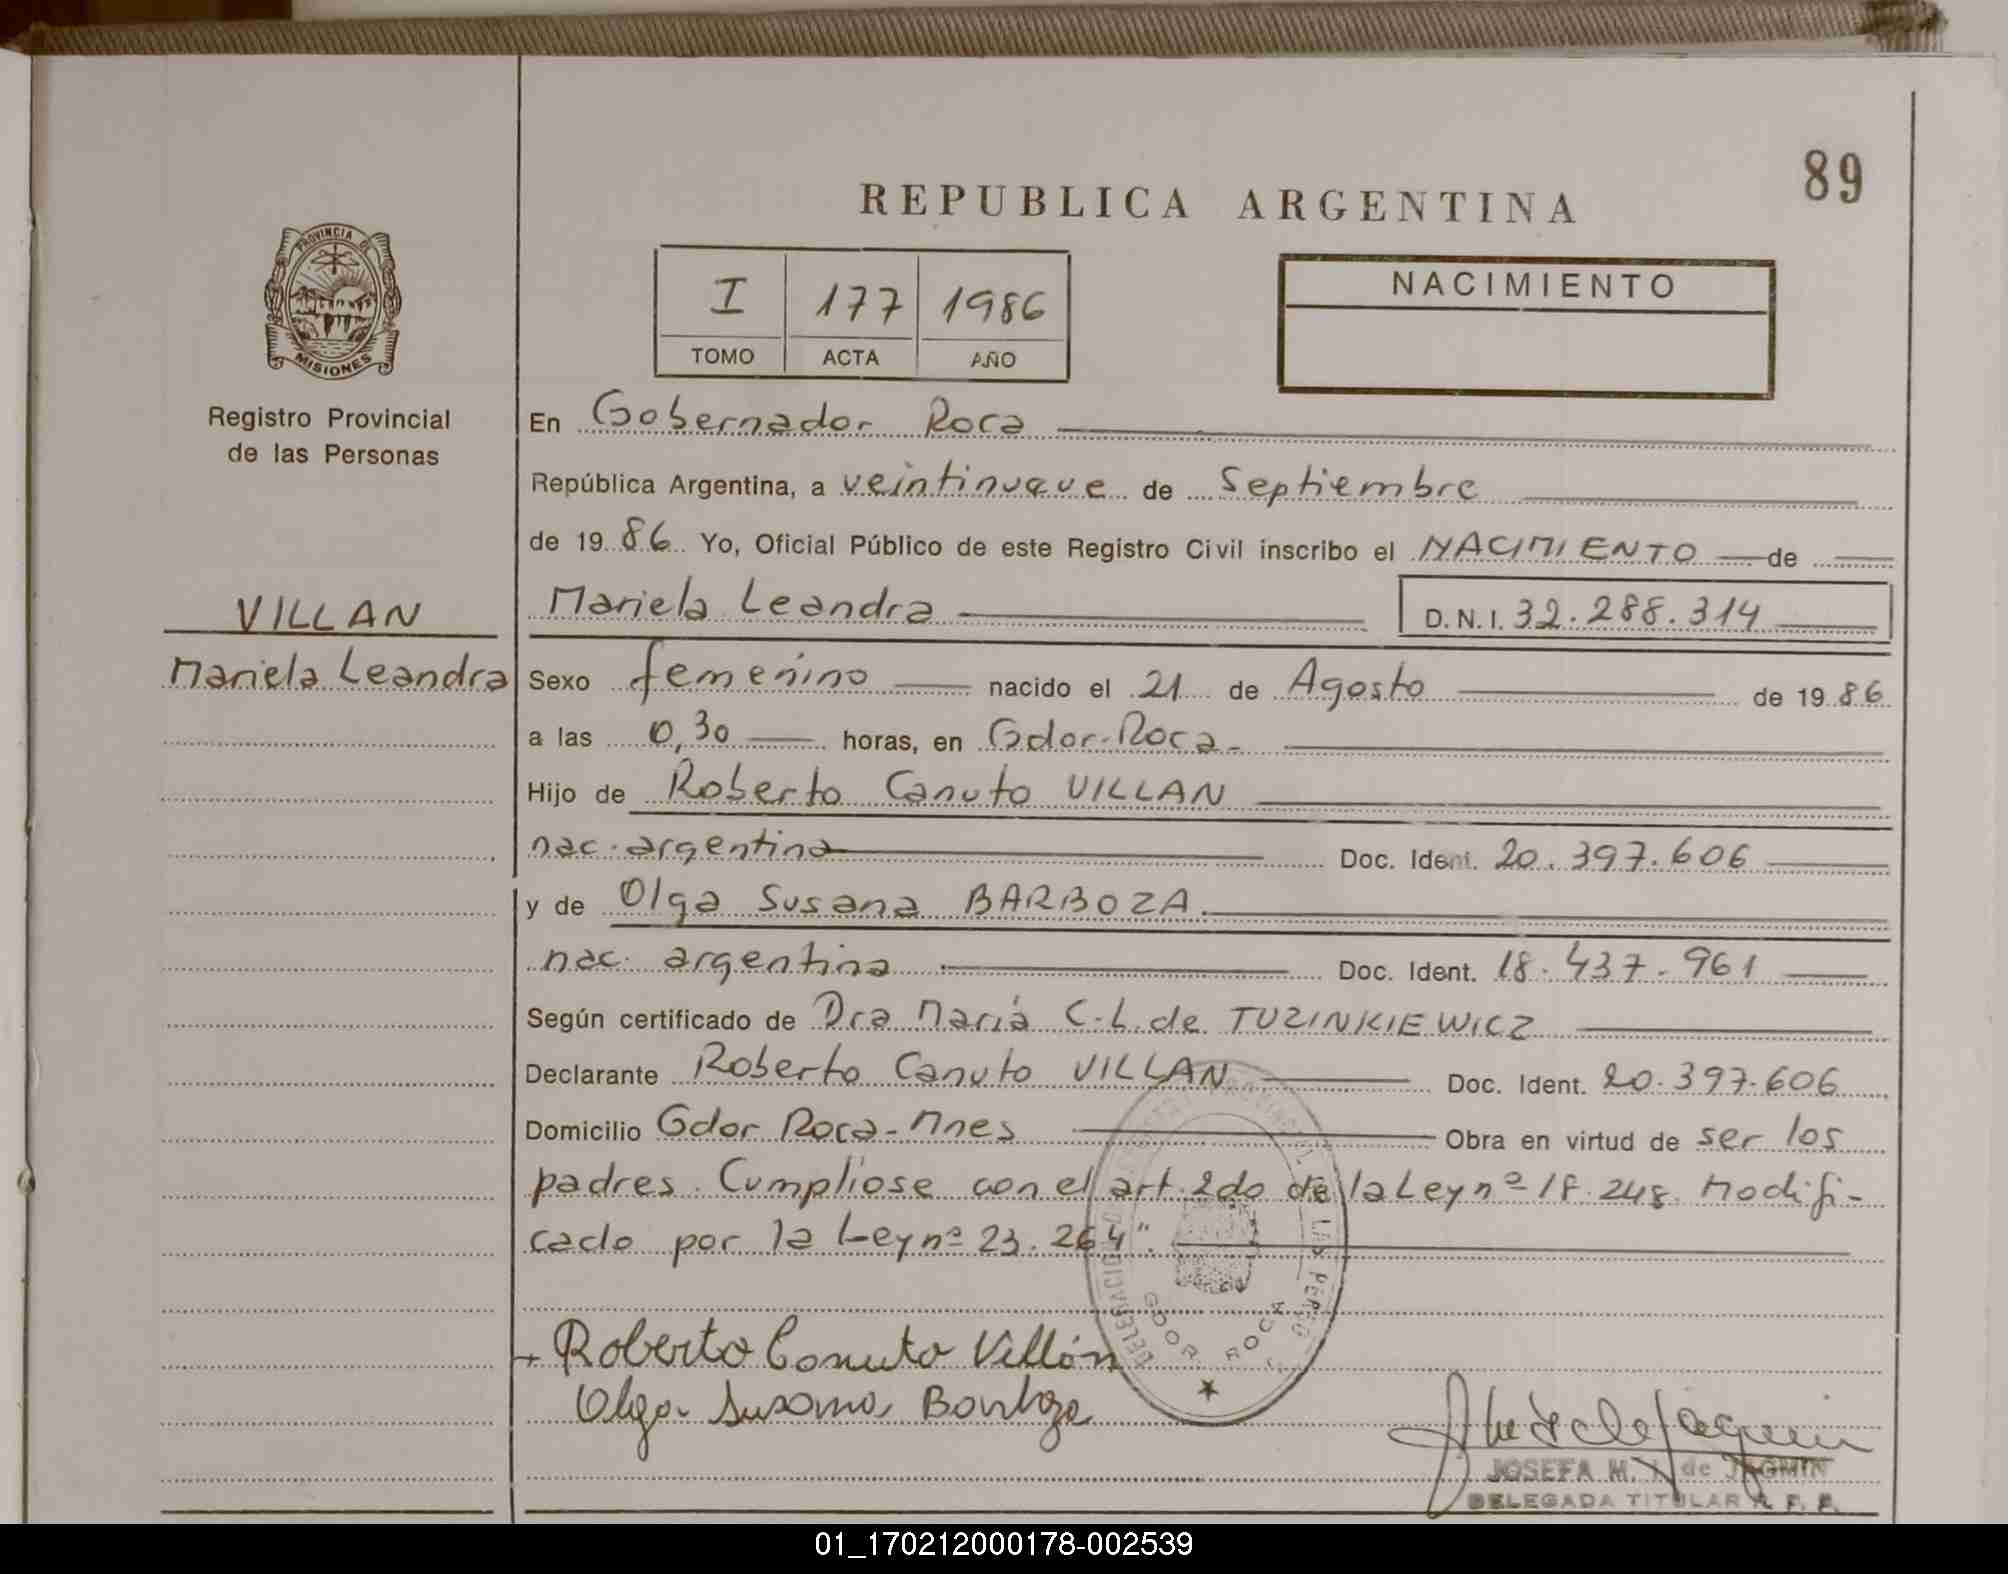 89
REPUBLICA ARGENTINA
PROVINCIA DE
MISIONES
Registro Provincial
de las Personas
I 177 1986
TOMO ACTA AÑO
NACIMIENTO
En Gobernador Roca
República Argentina, a veintinueve de Septiembre
de 1986 Yo, Oficial Público de este Registro Civil inscribo el NACIMIENTO de
VILLAN
Mariela Leandra
Mariela Leandra D.N.I. 32.288.314
Sexo femenino nacido el 21 de Agosto de 1986
a las 0,30 horas, en Gdor. Roca.-
Hijo de Roberto Canuto VILLAN
nac. argentina Doc. Ident. 20.397.606
y de Olga Susana BARBOZA.
nac. argentina Doc. Ident. 18.437.961
Según certificado de Dra Maria C.L. de TUZINKIEWICZ
Declarante Roberto Canuto VILLAN Doc. Ident. 20.397.606
Domicilio Gdor Roca-Mnes Obra en virtud de ser los
padres. Cumpliose con el art. 2do de la Ley nº 18.248. Modifi-
cado por la Ley nº 23.264".
GDOR. ROCA
Roberto Canuto Villán
Olga Susana Barboza
JOSEFA M. de JAGMIN
DELEGADA TITULAR R. P. P.
01_170212000178-002539